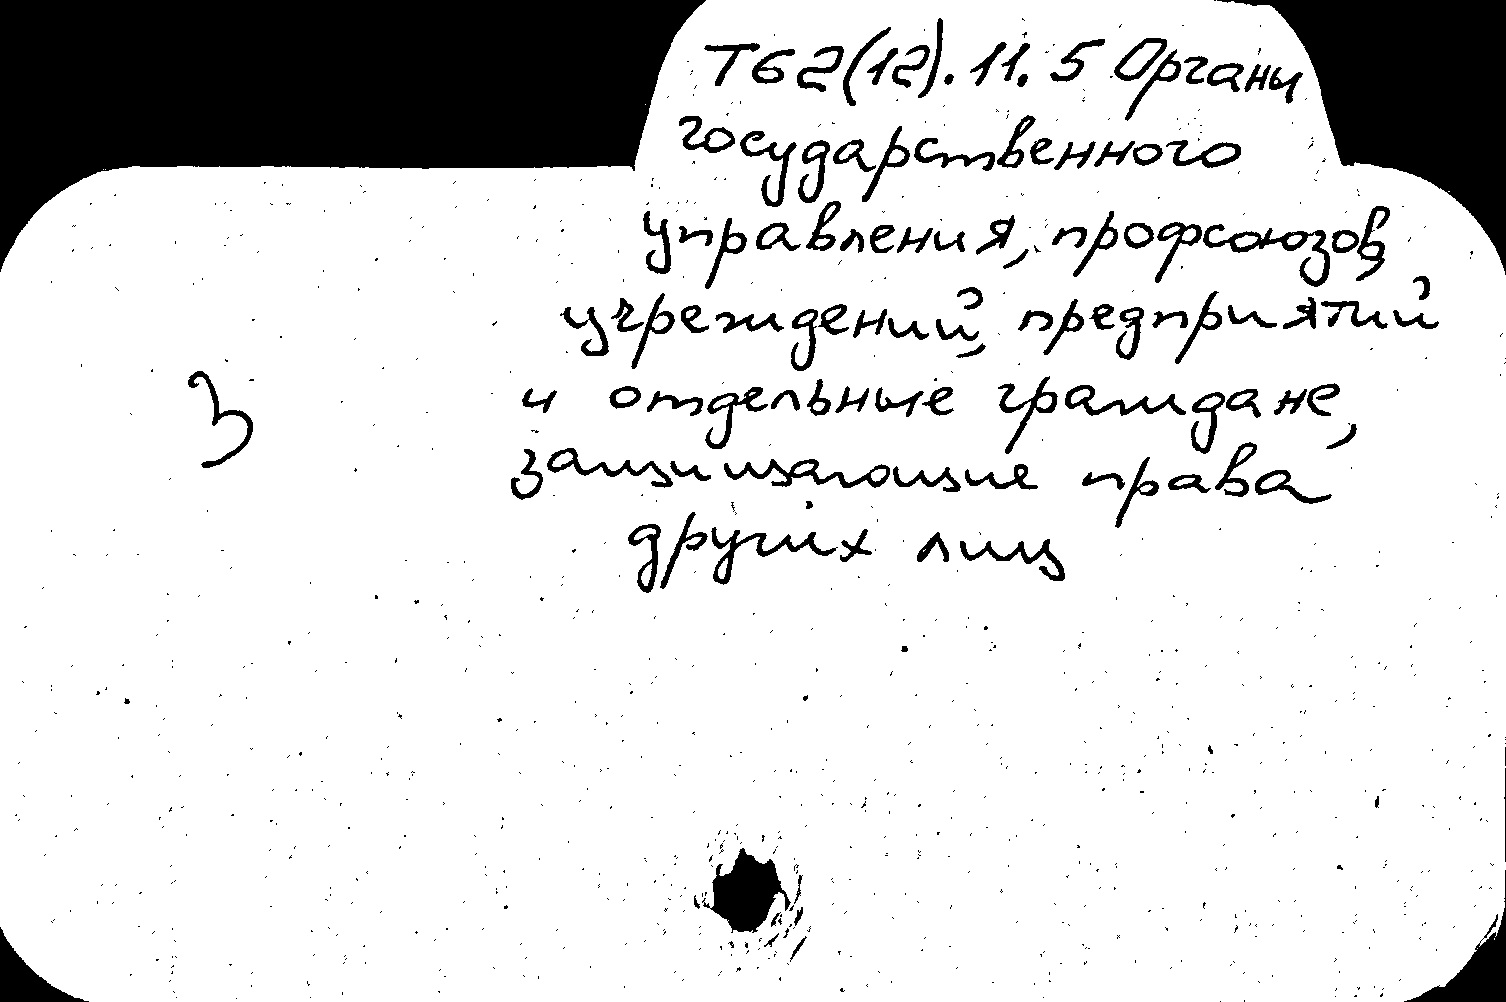 Т62(12).11.5 Органы
государственного
управления, профсоюзов,
учреждений, предприятий
3 и отдельные граждане,
защищающие права
других лиц